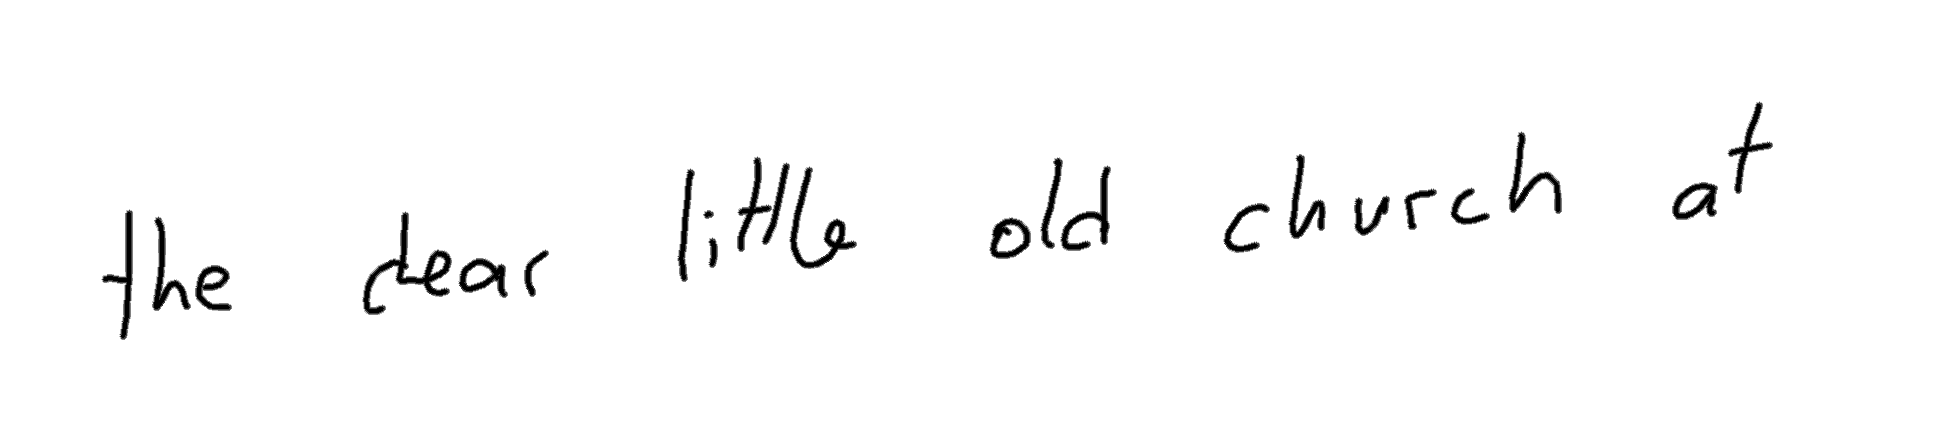 the dear little old church at